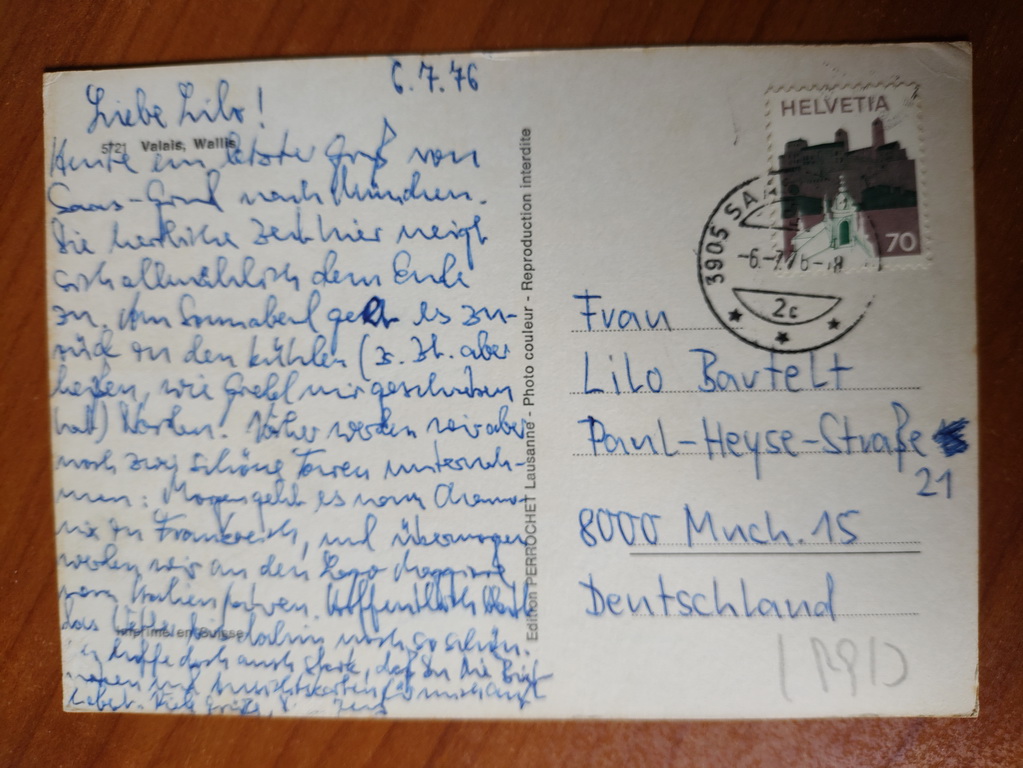 6.7.76
Liebe Lilo!
5721 Valais, Wallis
Heute ein letzter Gruß von
Saas-Grund nach München.
Die herrliche Zeit hier neigt
sich allmählich dem Ende
zu. Am Sonnabend geht es zu-
rück in den kühlen (z. Zt. aber
heißen, wie Gretel mir geschrieben
hat) Norden. Vorher werden wir aber
noch zwei schöne Touren unterneh-
men: Morgen geht es nach Chamo-
nix in Frankreich, und übermorgen
wollen wir an den Lago Maggiore
nach Italien fahren. Hoffentlich bleibt
das Wetter bis dahin noch so schön.
Imprimé en Suisse
Ich hoffe doch auch stark, daß Du die Brief-
marken und Ansichtskarten für mich
Viele Grüße,
Edition PERROCHET Lausanne - Photo couleur - Reproduction interdite
HELVETIA
70
3905 SA
-6.-7.76-18
2c
Frau
Lilo Bartelt
Paul-Heyse-Straße
21
8000 Münch. 15
Deutschland